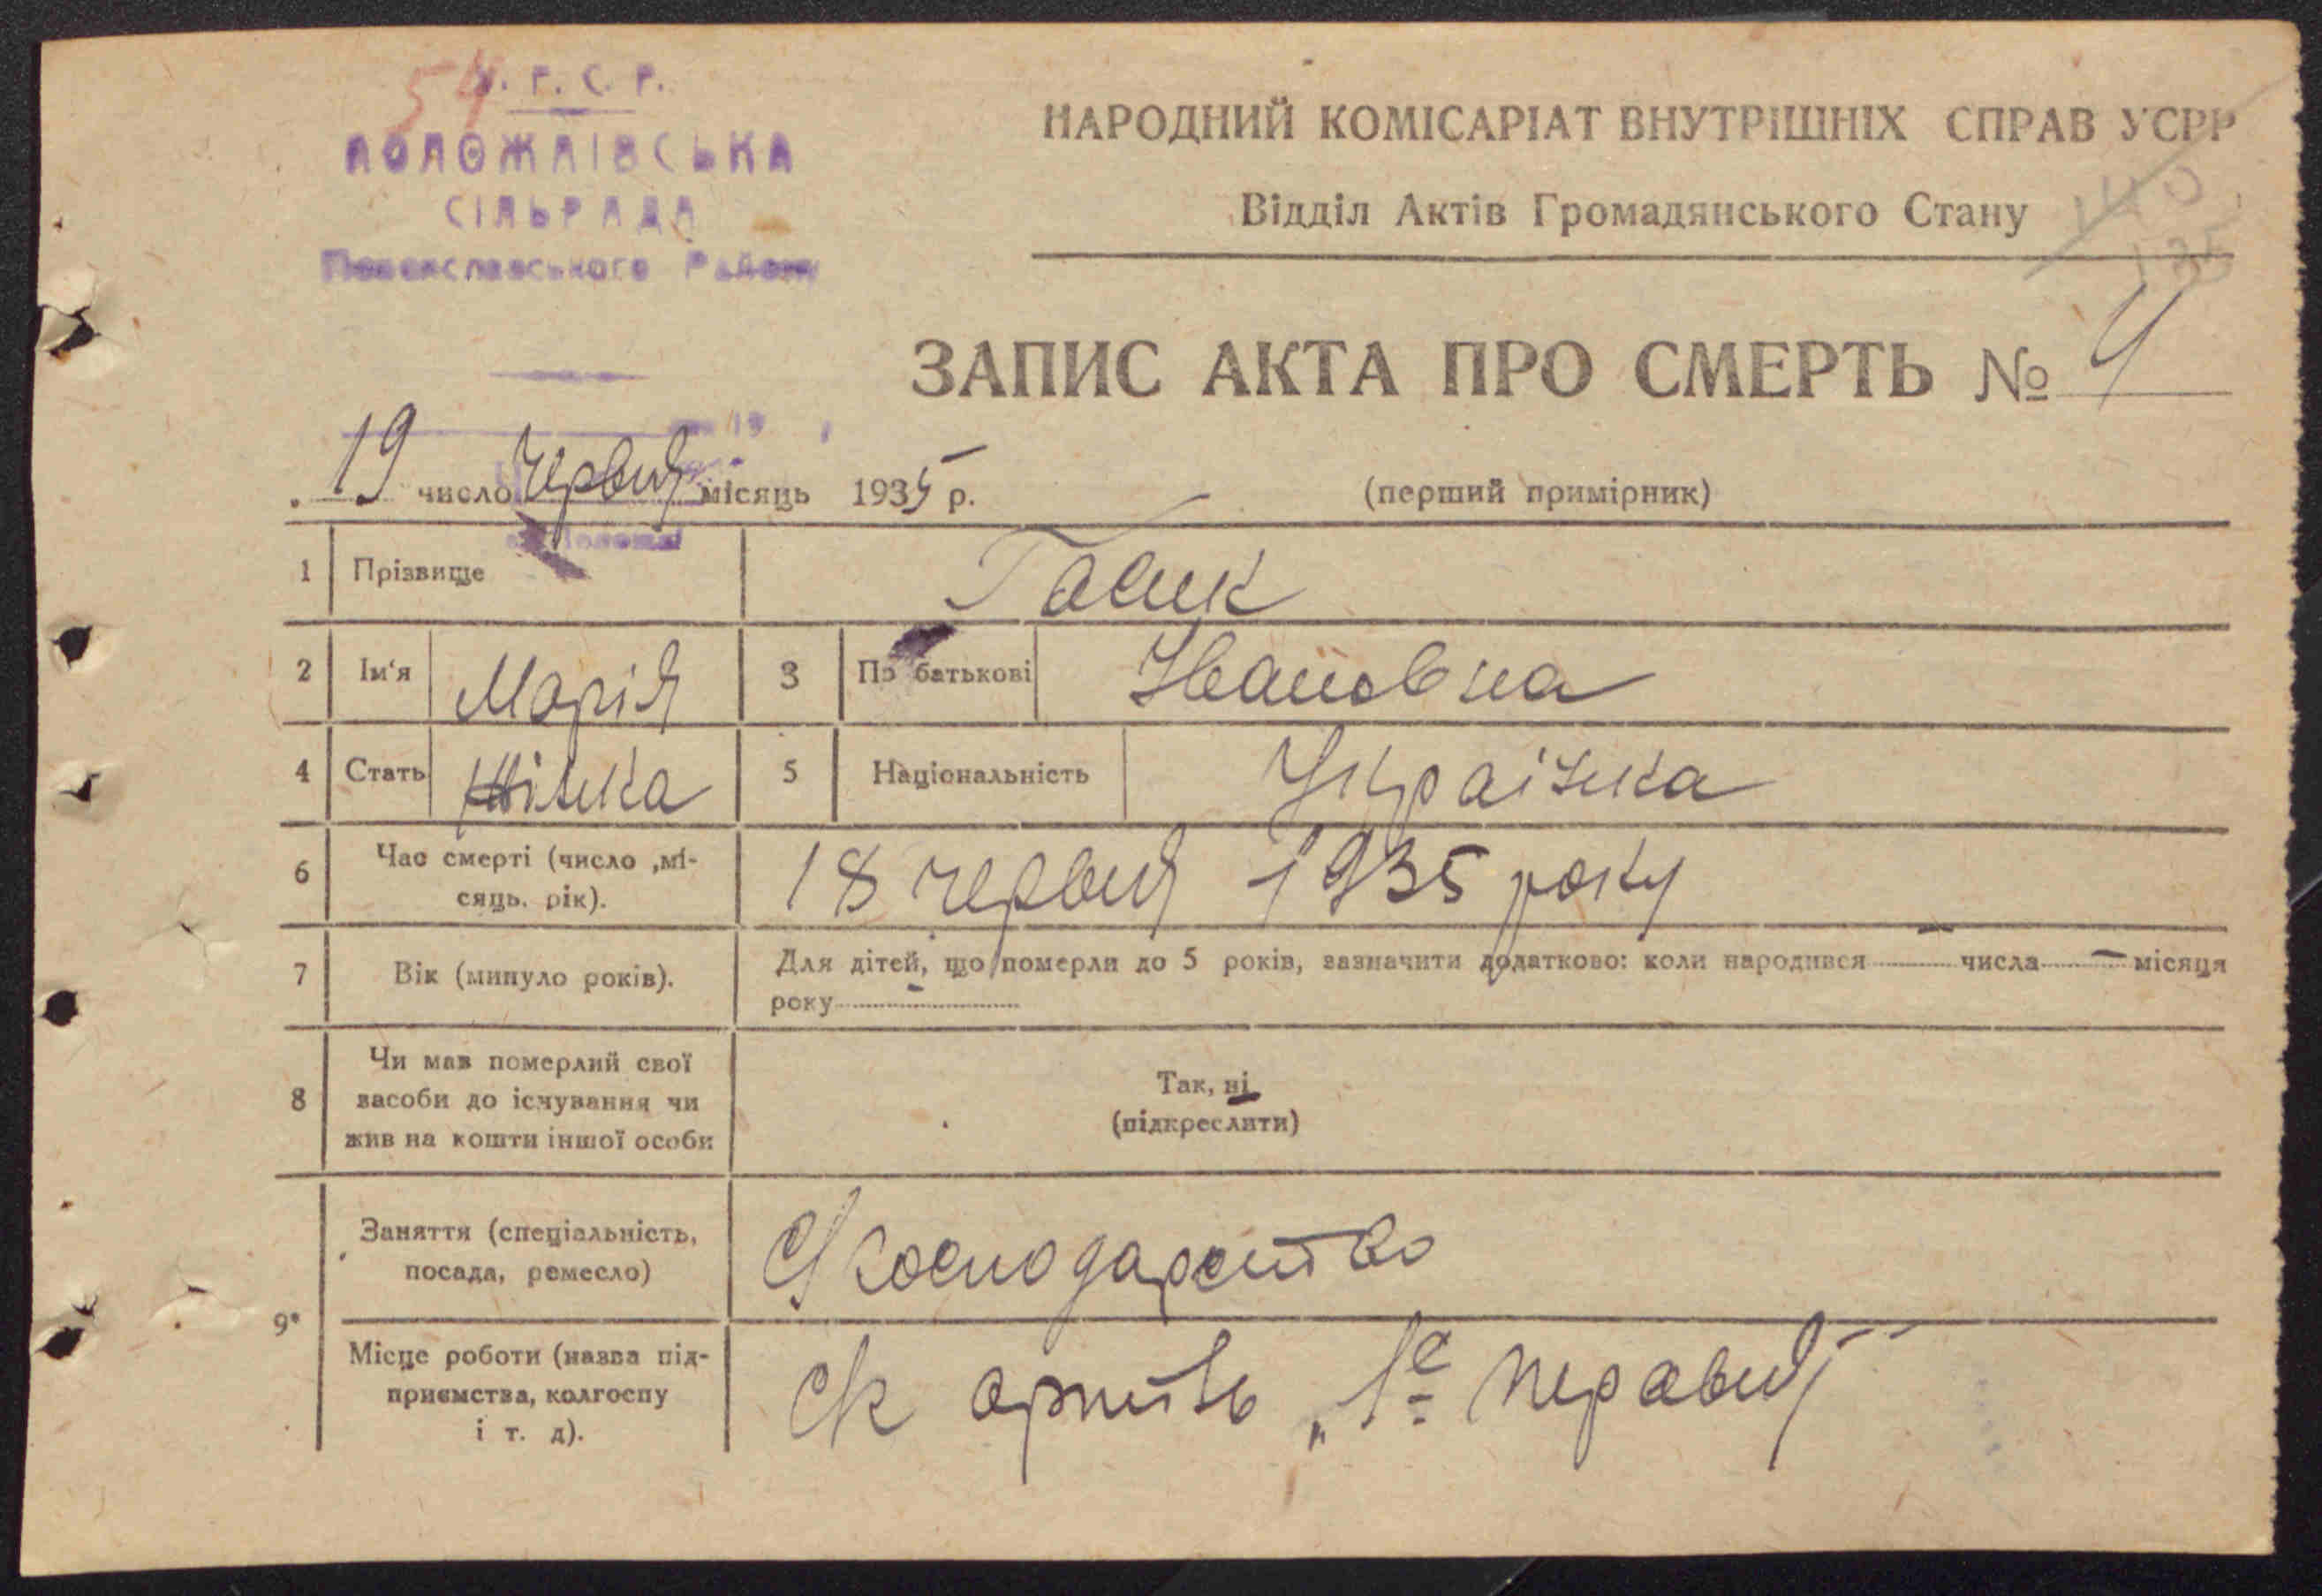 54
У.Р.С.Р.
ПОЛОЖАЇВСЬКА
СІЛЬРАДА
Району
НАРОДНИЙ КОМІСАРІАТ ВНУТРІШНІХ СПРАВ УСРР
Відділ Актів Громадянського Стану
140
135
ЗАПИС АКТА ПРО СМЕРТЬ № 4
19 число червня місяць 1935 р.
(перший примірник)
1 Прізвище
2 Ім'я Марія 3 По батькові Ивановна
4 Стать Жінка 5 Національність Українка
6 Час смерті (число ,мі-
сяць. рік).
18 червня 1935 року
7 Вік (минуло років).
Для дітей, що померли до 5 років, зазначити додатково: коли народився — числа — місяця
року —
8 Чи мав померлий свої
засоби до існування чи
жив на кошти іншої особи
Так, ні
(підкреслити)
9
Заняття (спеціальність,
посада, ремесло)
С/господарство
Місце роботи (назва під-
приємства, колгоспу
і т. д).